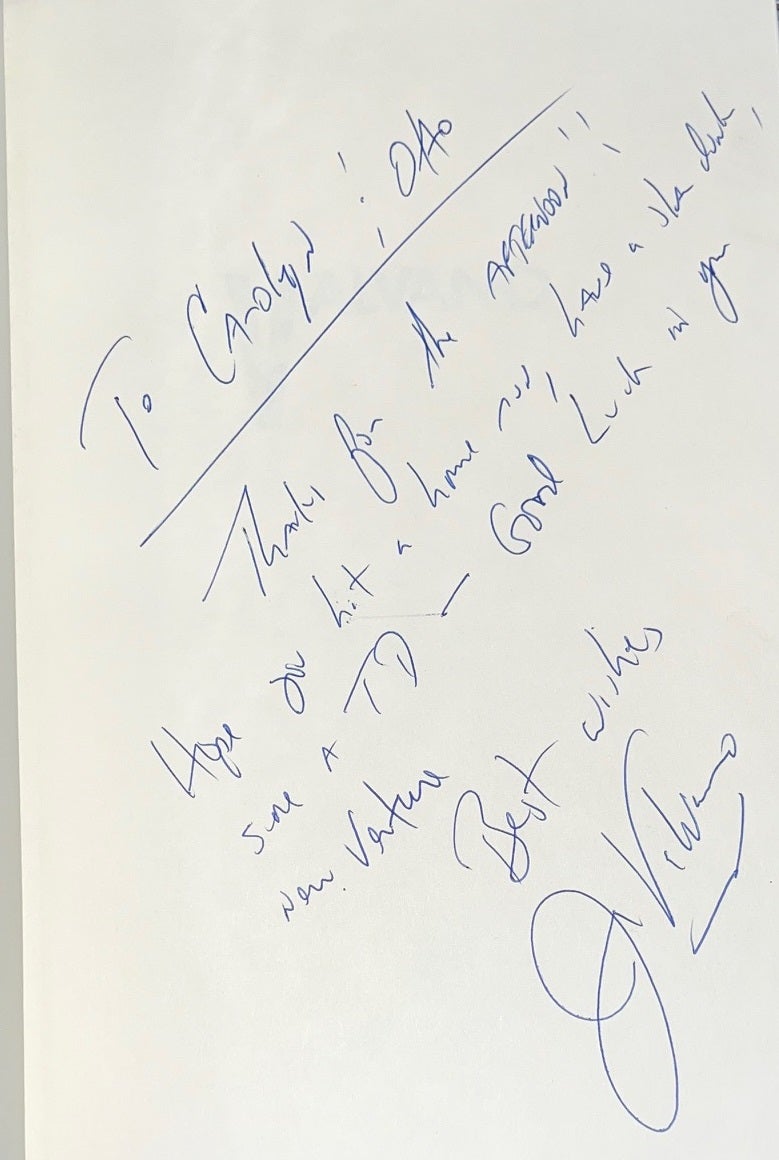 To Carolyn & Otto
Thanks for the AFTERNOON!!
Hope you hit a home run, have a slam dunk,
score A TD — Good Luck in your
New Venture
Best wishes